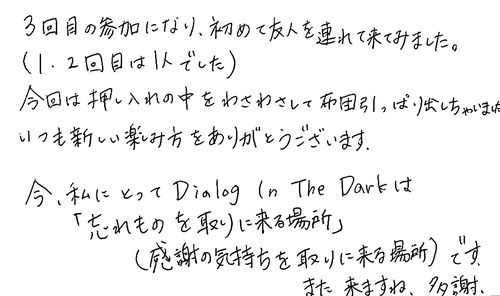 3回目の参加になり、初めて友人を連れて来てみました。
(1.2回目は1人でした)
今回は押し入れの中をわさわさして布団引っぱり出しちゃいました
いつも新しい楽しみ方をありがとうございます.
今、私にとって Dialog In The Darkは
「忘れものを取りに来る場所」
(感謝の気持ちを取りに来る場所)です.
また来ますね、多謝、